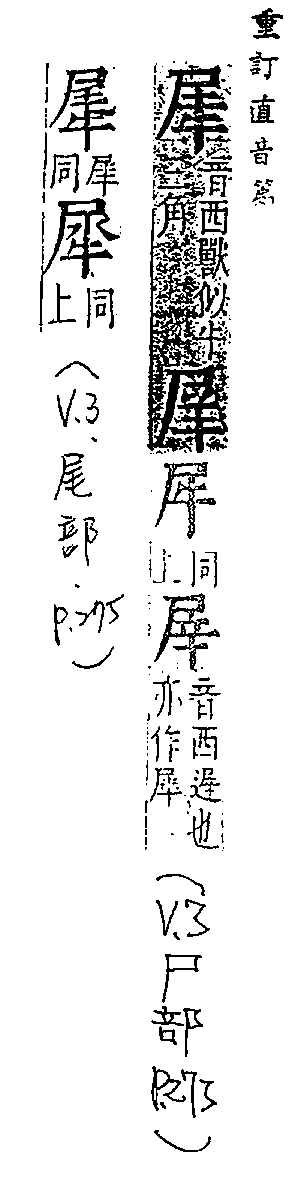 重訂直音篇
犀音西獸似牛三角犀犀同上犀音西遲也亦作犀(V.3尸部P.273)
犀同犀犀同上(V.3、尾部.P.275)